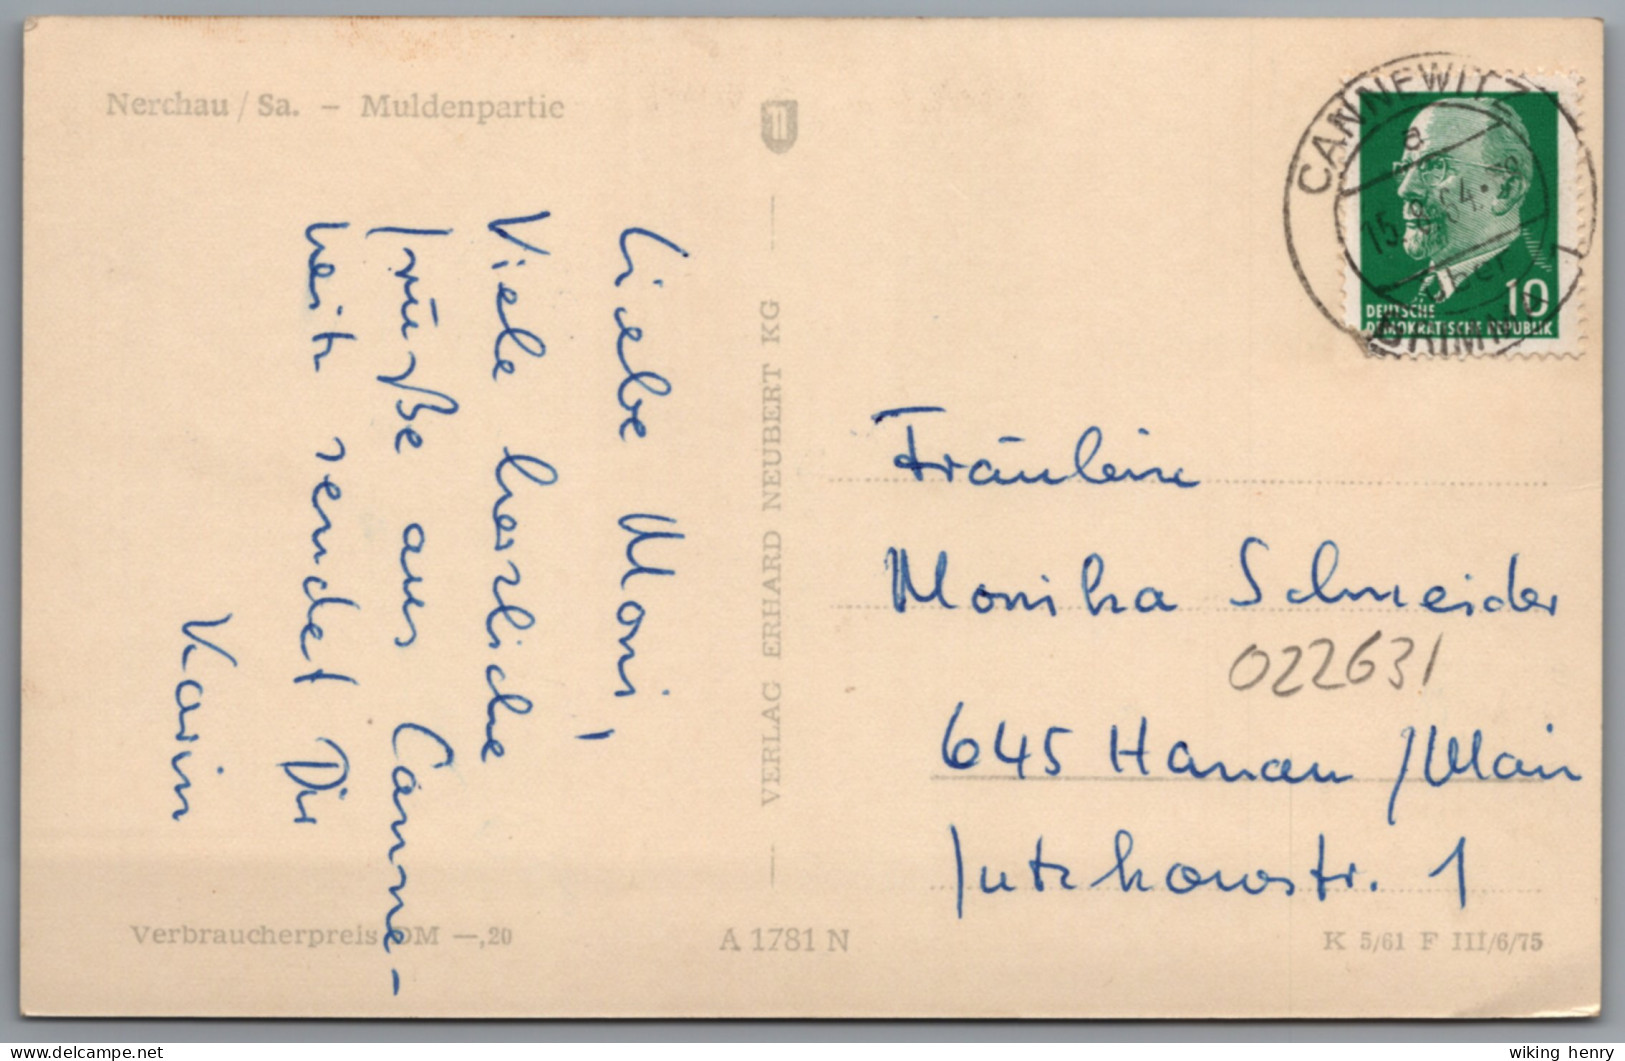 Nerchau / Sa. – Muldenpartie
Liebe Moni,
Viele herzliche
Grüße aus Canne-
witz sendet Dir
Karin
VERLAG ERHARD NEUBERT KG
Verbraucherpreis DM —,20
A 1781 N
K 5/61 F III/6/75
CANNEWITZ
a
über
GRIMMA
10
DEUTSCHE
DEMOKRATISCHE REPUBLIK
Fräulein
Monika Schneider
022631
645 Hanau /Main
Gutzkowstr. 1
wiking henry
delcampe.net